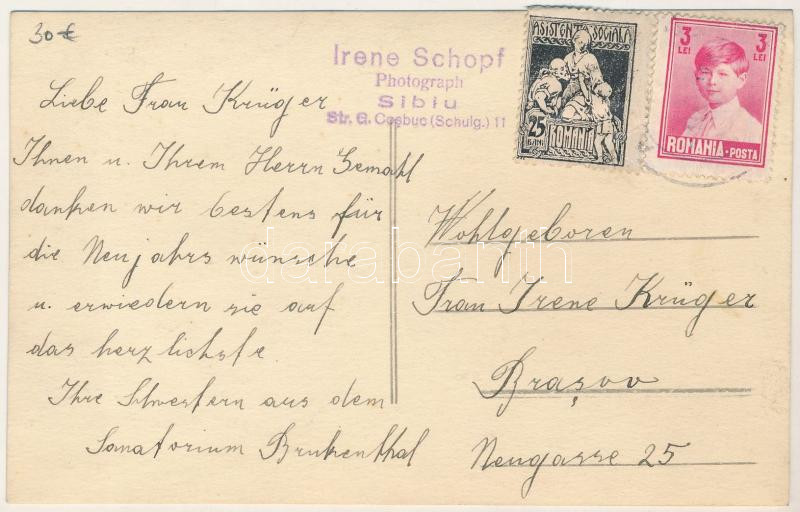 30 €
Irene Schopf
Photograph
Sibiu
Str. G. Cosbuc (Schulg.) 11
ASISTENȚA SOCIALA
25
BANI
ROMANIA
3
LEI
3
LEI
ROMANIA-POSTA
Liebe Frau Krüger
Ihnen u. Ihrem Herrn Gemahl
danken wir bestens für
die Neujahrs wünsche
u. erwiedern sie auf
das herzlichste.
Ihre Schwestern aus dem
Sanatorium Brukenthal
Wohlgeboren
Frau Irene Krüger
Brașov
Neugasse 25
darabanth